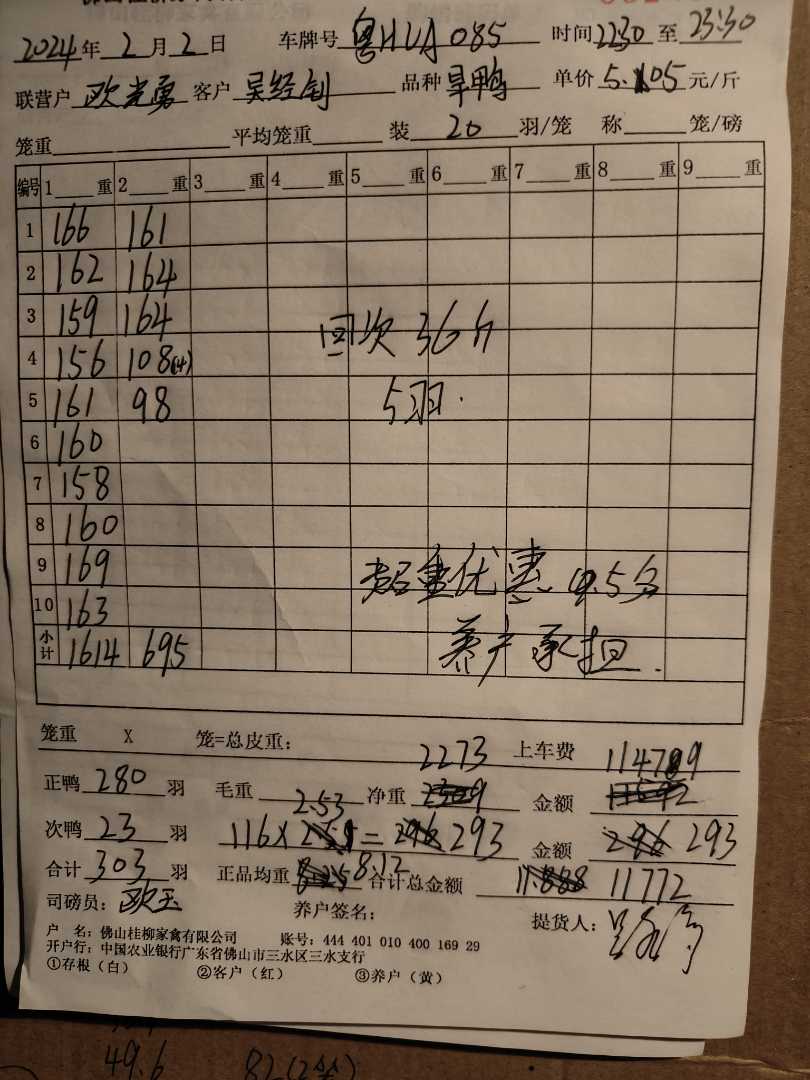 2024年2月2日 车牌号 粤HUA085 时间 2230 至 23:30
联营户 欧光勇 客户 吴经钊 品种 旱鸭 单价 5.05 元/斤
笼重 平均笼重 装 20 羽/笼 称 笼/磅
编号 1 重 2 重 3 重 4 重 5 重 6 重 7 重 8 重 9 重
1 166 161
2 162 164
3 159 164
4 156 108(14)
5 161 98
6 160
7 158
8 160
9 169
10 163
小计 1614 695
回次 36斤
5羽.
超重优惠 4.5分
养户承担.
笼重 X 笼=总皮重: 2273 上车费 114789
正鸭 280 羽 毛重 净重 2309 金额
次鸭 23 羽 116X 2.53 = 293 金额 293
合计 303 羽 正品均重 8.12 合计总金额 11.888 11772
司磅员: 欧玉 养户签名: 提货人:
户 名: 佛山桂柳家禽有限公司 账号: 444 401 010 400 169 29
开户行: 中国农业银行广东省佛山市三水区三水支行
①存根(白) ②客户(红) ③养户(黄)
49.6